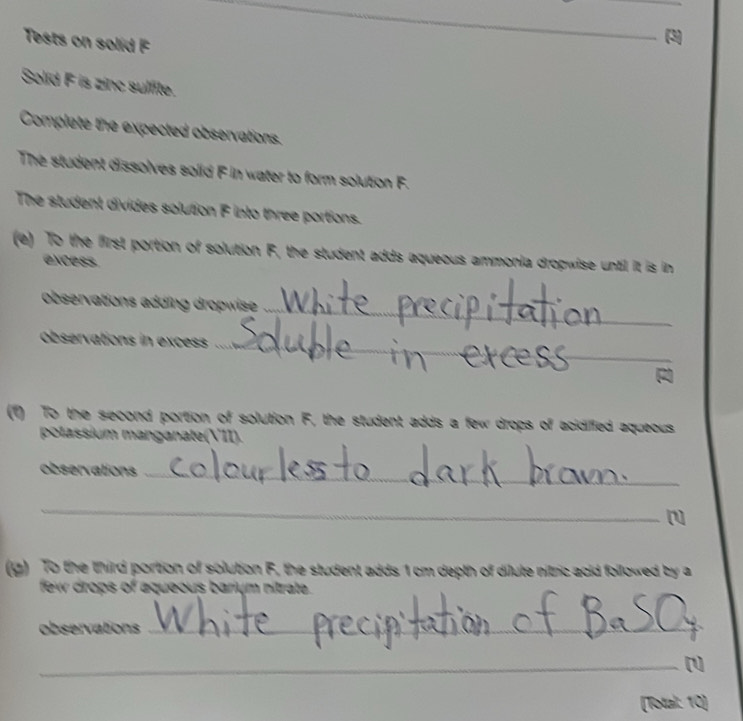 [3]
Tests on solid F
Solid F is zinc sulfite.
Complete the expected observations.
The student dissolves solid F in water to form solution F.
The student divides solution F into three portions.
(e) To the first portion of solution F, the student adds aqueous ammonia dropwise until it is in
excess.
observations adding dropwise White precipitation
observations in excess Soluble in excess
[2]
(f) To the second portion of solution F, the student adds a few drops of acidified aqueous
potassium manganate(VII).
observations colourless to dark brown.
[1]
(g) To the third portion of solution F, the student adds 1 cm depth of dilute nitric acid followed by a
few drops of aqueous barium nitrate.
observations White precipitation of BaSO4.
[1]
[Total: 10]